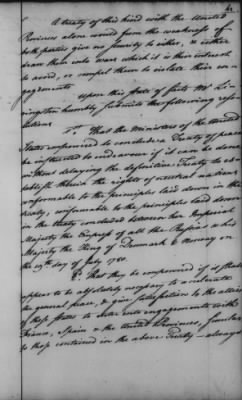 A treaty of this kind with the United
Provinces alone would from the weakness of
both parties give no security to either, & either
draw them into wars which it is their interest
to avoid, or compel them to violate their en-
gagements
Upon this state of facts Mr Li-
vingston humbly submits the following reso-
lutions
1st That the Ministers of the United
States empowered to conclude a Treaty of peace
be instructed to endeavour if it can be done
without delaying the definitive Treaty to es-
tablish therein the rights of neutral nations
conformable to the principles laid down in the
treaty, conformable to the principles laid down
in the treaty concluded between her Imperial
Majesty the Empress of all the Russias & his
Majesty the King of Denmark & Norway on
the 19th day of July 1780.
2d That they be empowered if a step
appear to be absolutely necessary to accelerate
the general peace, & give satisfaction to the allies
of these States to enter into engagements with
France, Spain & the United Provinces, similar
to those contained in the above Treaty – always